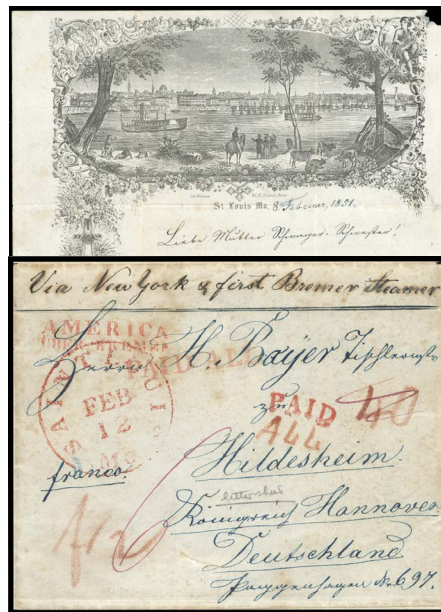 St Louis Mo. 8. Februar, 1851.
Liebe Mutter Schwager. Schwester!
Via New York & first Bremer Steamer
AMERICA
ÜBER BREMEN
PAID ALL
Herrn H. Bayer Tischlermstr
SAINT LOUIS
FEB
12
MO.
zu
PAID
ALL
40
Hildesheim
franco.
Königreich Hannover
Deutschland
No 697.